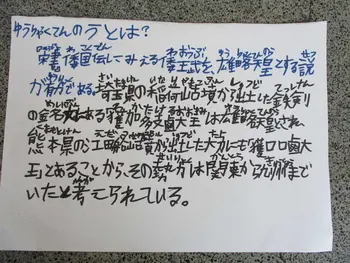 ゆうりゃくてんのうとは?
宋書倭国伝にみえる倭王武を、雄略天皇とする説
が有力である。埼玉県の稲荷山古墳から出土した鉄剣
の銘文にある獲加多支鹵大王は雄略天皇とされ、
熊本県の江田船山古墳から出土した大刀にも獲□□□鹵大
王とあることから、その勢力は関東から九州まで
いたと考えられている。